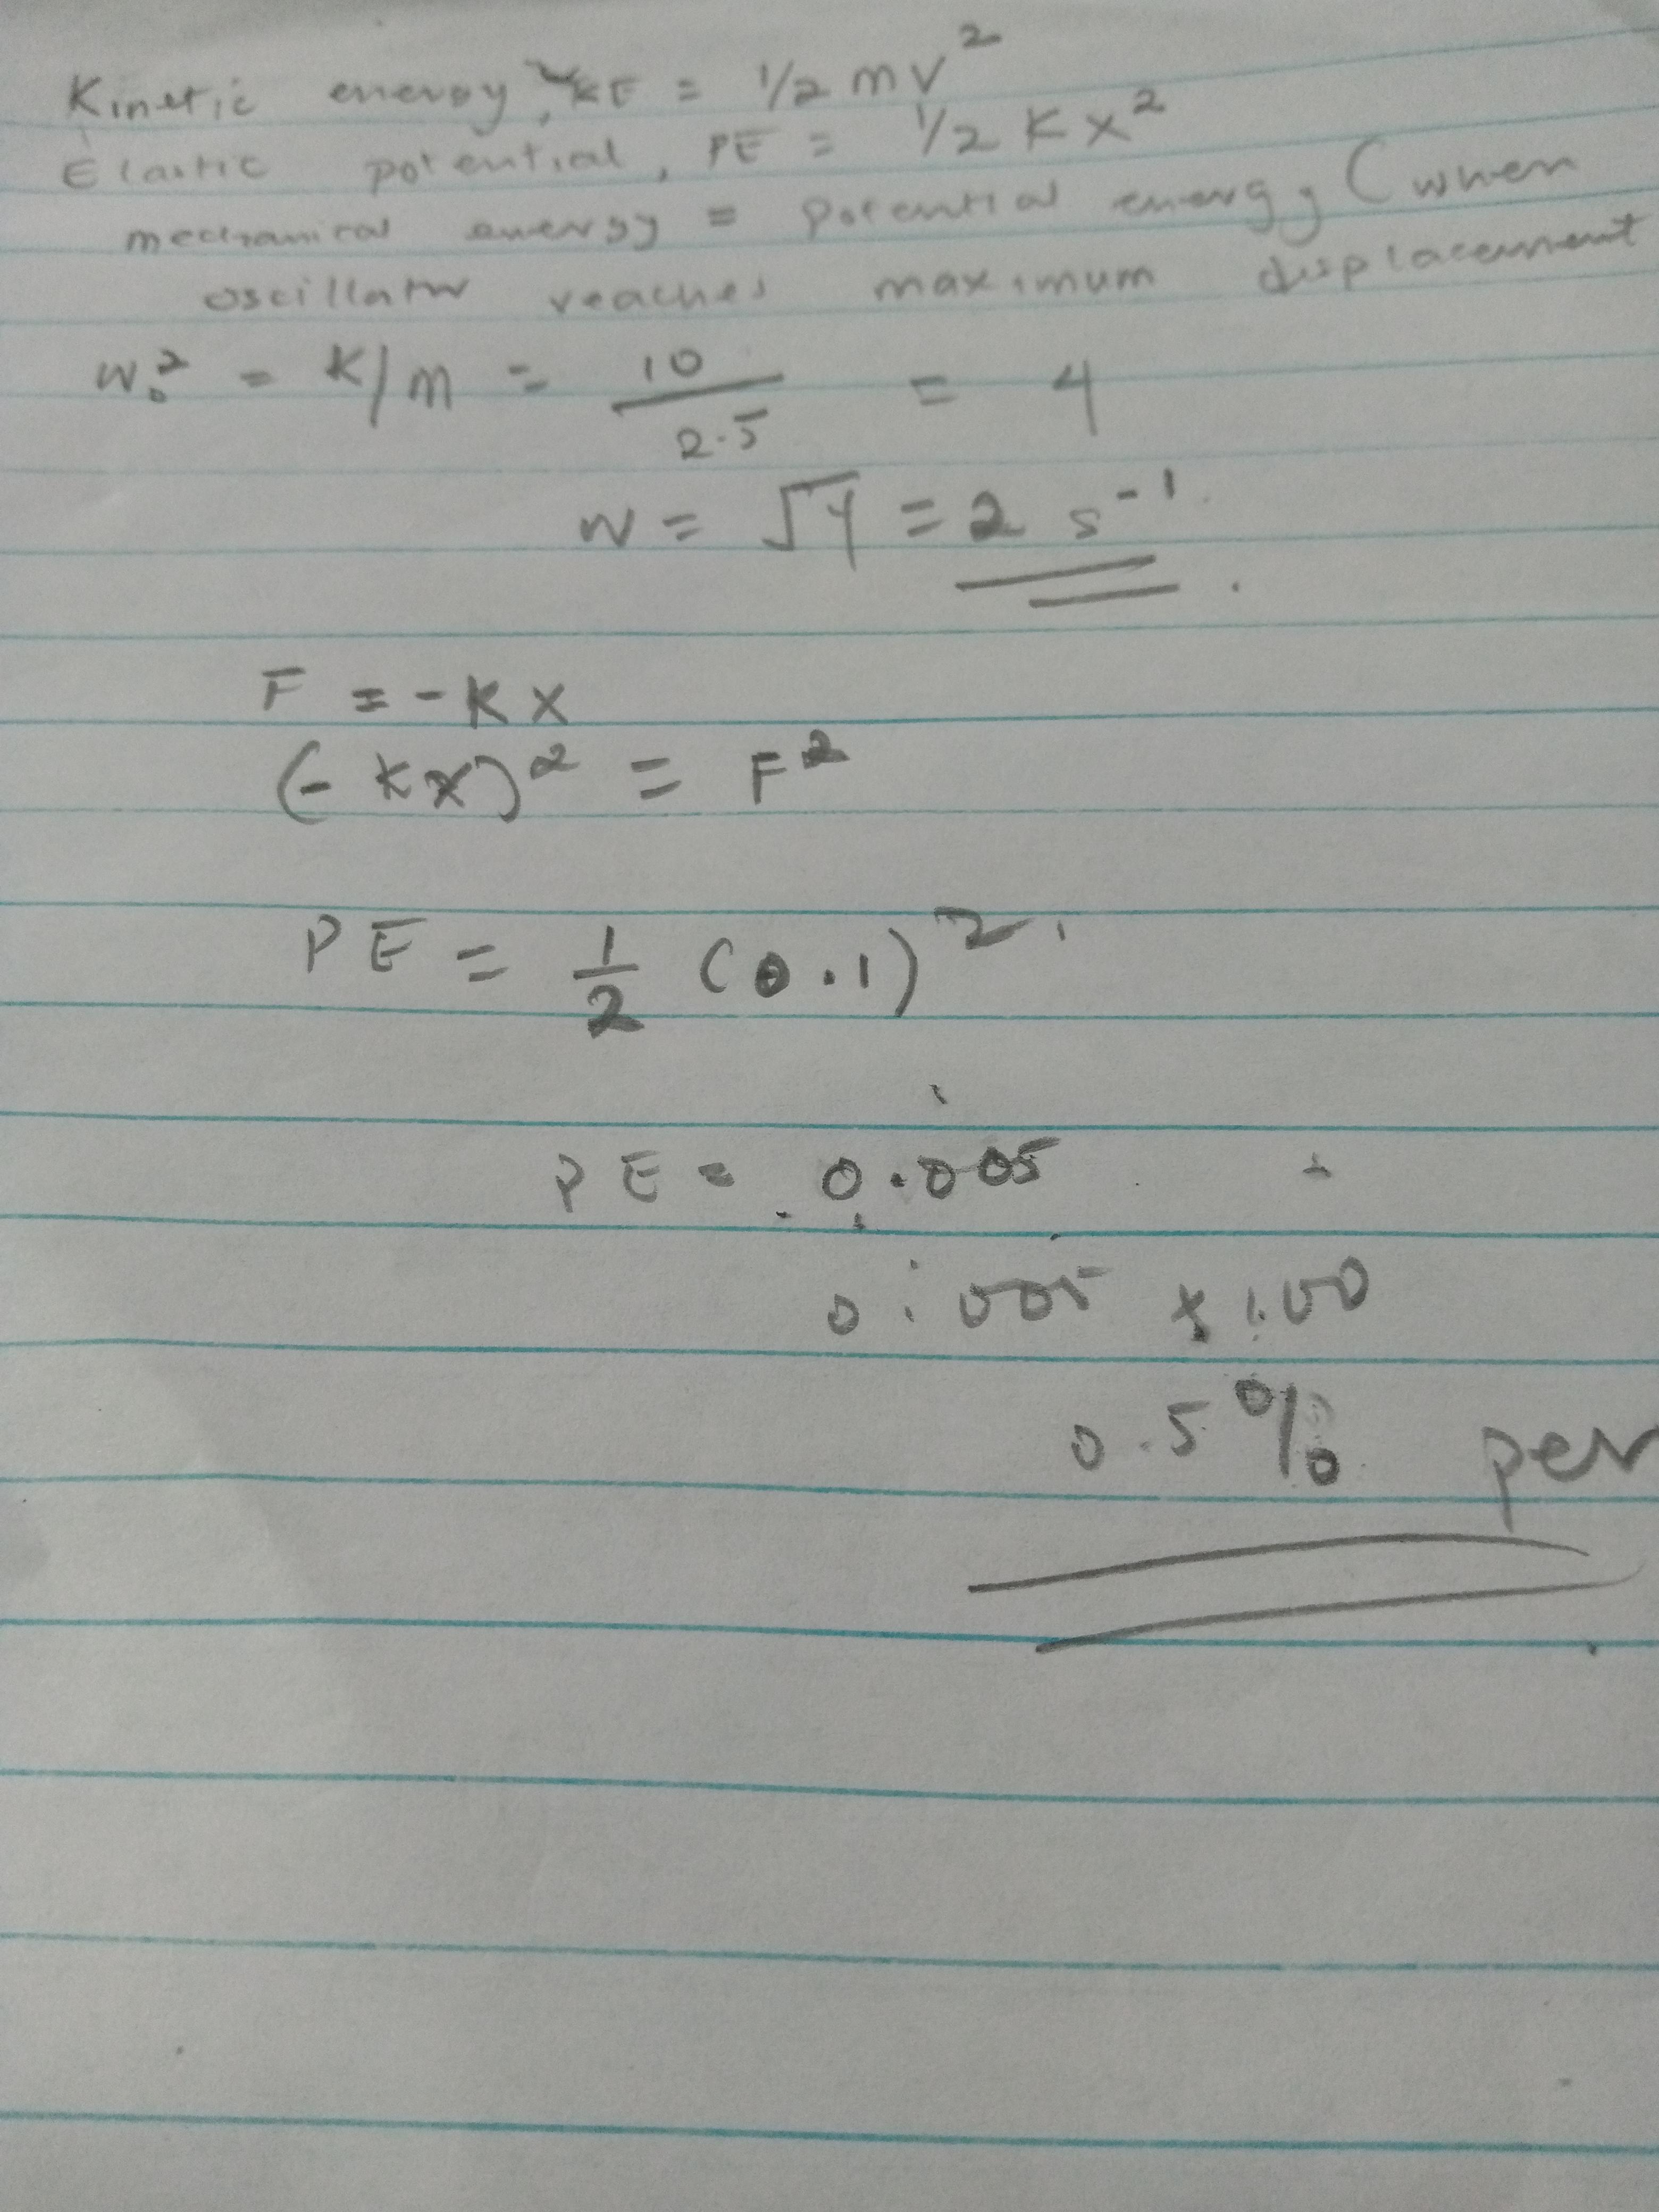 Kinetic energy, KE = 1/2 mv²
Elastic potential, PE = 1/2 Kx²
mechanical energy = potential energy (when
oscillator reaches maximum displacement
w₀² = K/m = 10/2.5 = 4
w = √4 = 2 s⁻¹.
F = -Kx
(-Kx)² = F²
PE = 1/2 (0.1)²
PE = 0.005
0.005 x 100
0.5% per